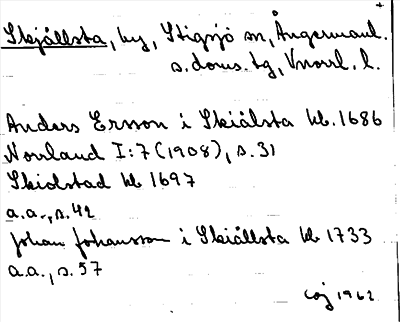 Skjållsta, by, Stigsjö sn, Ångermanl.
s. doms. tg, Vnorrl. l.
Anders Ersson i Skiålsta kb. 1686
Norrland I:7 (1908), s. 31
Skiolstad kb 1697
a.a., s. 42
Johan Johansson i Skiållsta kb 1733
a.a., s. 57
1962